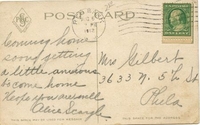 POST CARD
Coming home
soon getting
a little anxious
to come home
Hope you are well
Alice
Mrs Gilbert
3633 N. 5th St
Phila